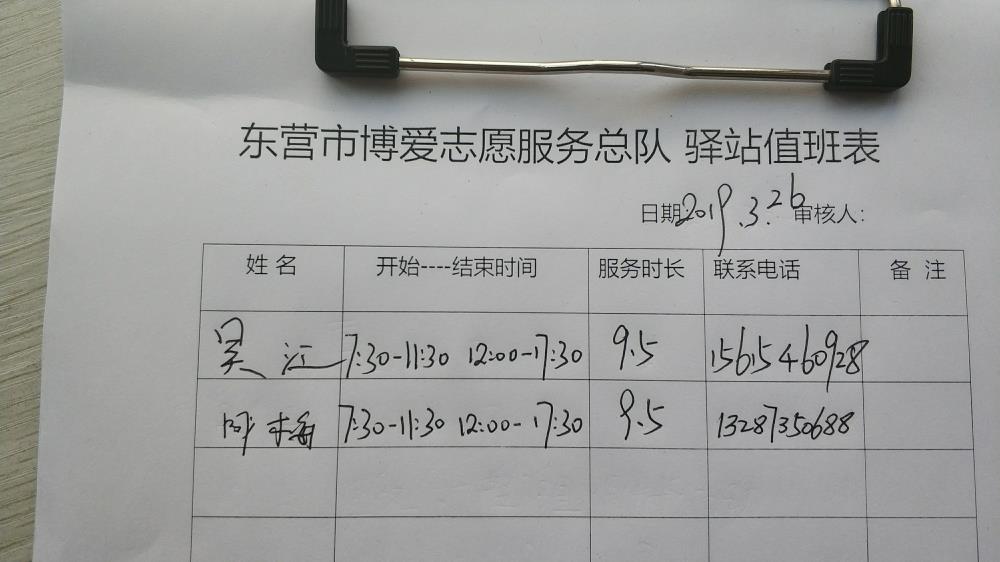 东营市博爱志愿服务总队 驿站值班表
日期:2019.3.26 审核人:
姓名 开始----结束时间 服务时长 联系电话 备 注
吴江 7:30-11:30 12:00-17:30 9.5 15615460928
梅 7:30-11:30 12:00-17:30 9.5 13287350688